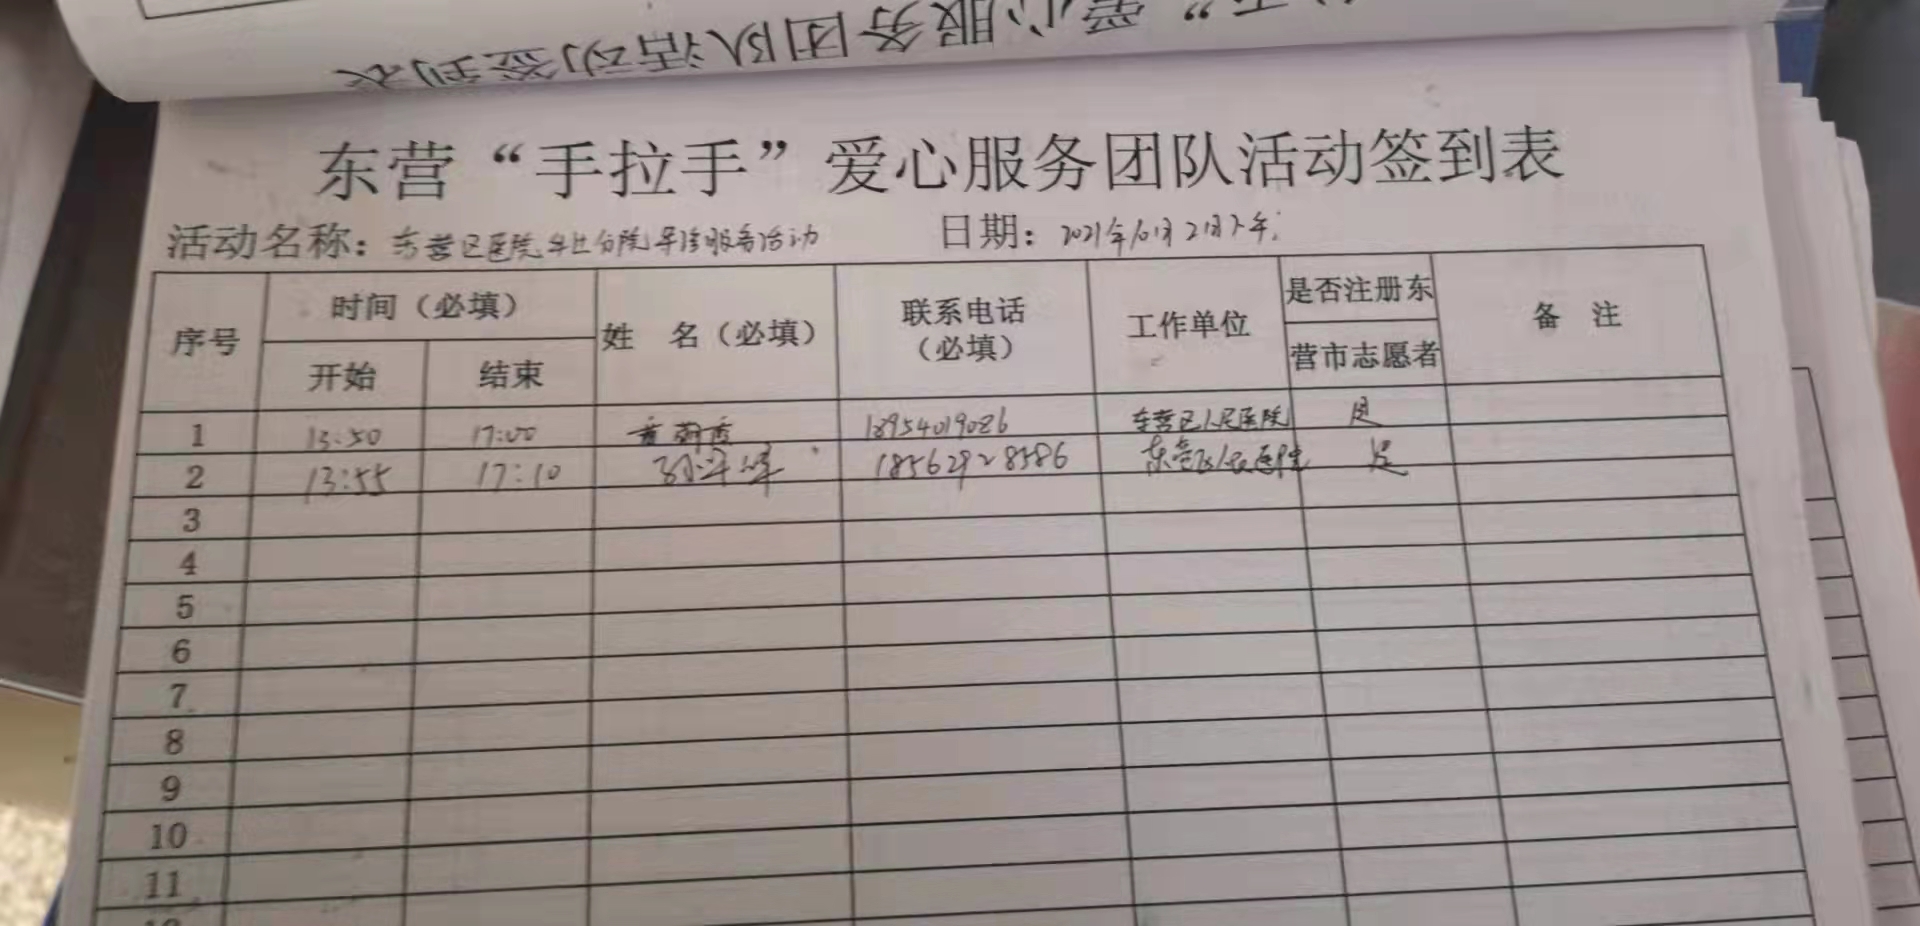 爱心服务团队活动签到表
东营“手拉手”爱心服务团队活动签到表
活动名称：东营区医院分院导诊服务活动 日期：2021年10月21日下午
序号 时间（必填） 姓 名（必填） 联系电话（必填） 工作单位 是否注册东营市志愿者 备 注
开始 结束
1 13:50 17:00 18954019086 东营区人民医院 是
2 13:55 17:10 18562928586 东营区人民医院 是
3
4
5
6
7
8
9
10
11